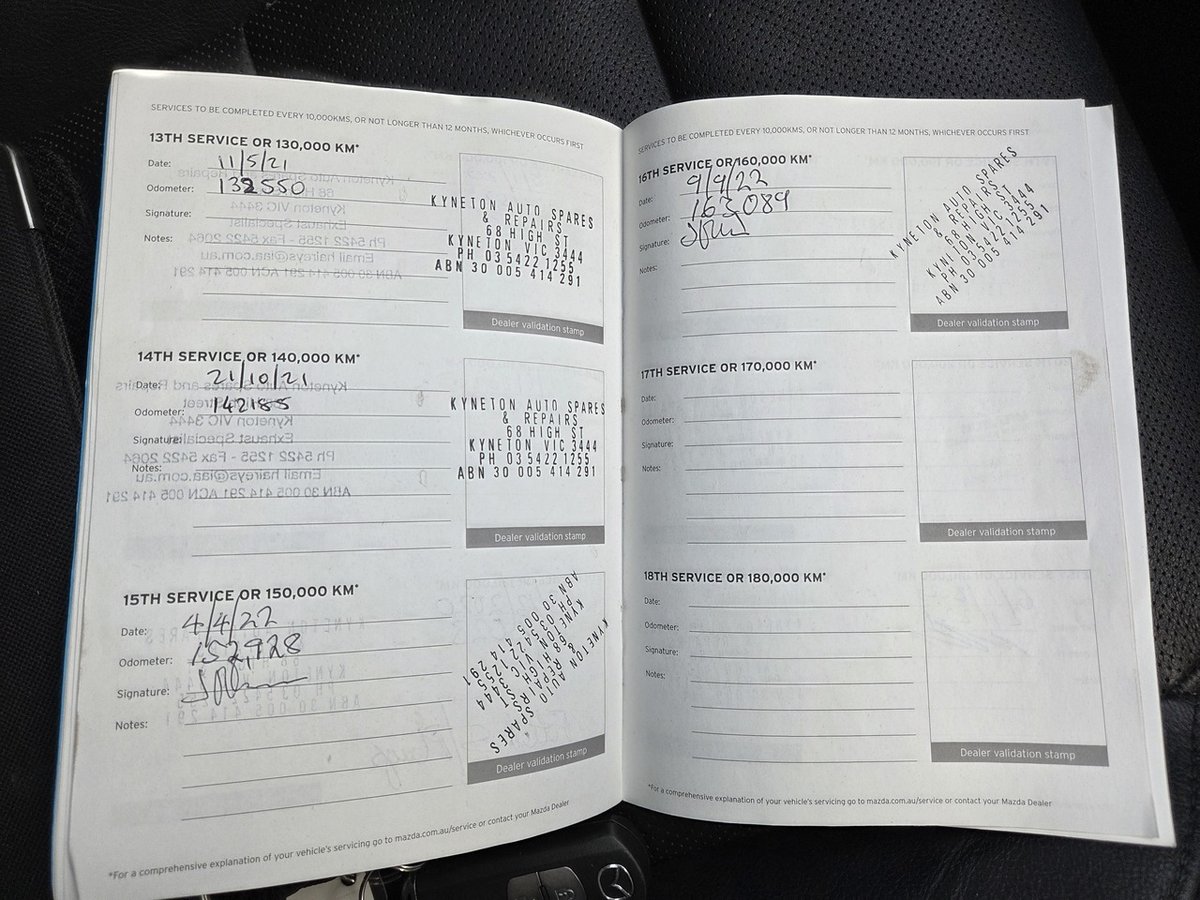 SERVICES TO BE COMPLETED EVERY 10,000KMS, OR NOT LONGER THAN 12 MONTHS, WHICHEVER OCCURS FIRST
13TH SERVICE OR 130,000 KM*
Date: 11/5/21
Odometer: 132550
Signature:
Notes:
KYNETON AUTO SPARES
& REPAIRS
68 HIGH ST
KYNETON VIC 3444
PH 03 5422 1255
ABN 30 005 414 291
Dealer validation stamp
14TH SERVICE OR 140,000 KM*
Date: 21/10/21
Odometer: 142185
Signature:
Notes:
KYNETON AUTO SPARES
& REPAIRS
68 HIGH ST
KYNETON VIC 3444
PH 03 5422 1255
ABN 30 005 414 291
Dealer validation stamp
15TH SERVICE OR 150,000 KM*
Date: 4/4/22
Odometer: 152,928
Signature:
Notes:
KYNETON AUTO SPARES
& REPAIRS
68 HIGH ST
KYNETON VIC 3444
PH 03 5422 1255
ABN 30 005 414 291
Dealer validation stamp
*For a comprehensive explanation of your vehicle's servicing go to mazda.com.au/service or contact your Mazda Dealer
SERVICES TO BE COMPLETED EVERY 10,000KMS, OR NOT LONGER THAN 12 MONTHS, WHICHEVER OCCURS FIRST
16TH SERVICE OR 160,000 KM*
Date: 9/9/22
Odometer: 163089
Signature:
Notes:
KYNETON AUTO SPARES
& REPAIRS
68 HIGH ST
KYNETON VIC 3444
PH 03 5422 1255
ABN 30 005 414 291
Dealer validation stamp
17TH SERVICE OR 170,000 KM*
Date:
Odometer:
Signature:
Notes:
Dealer validation stamp
18TH SERVICE OR 180,000 KM*
Date:
Odometer:
Signature:
Notes:
Dealer validation stamp
*For a comprehensive explanation of your vehicle's servicing go to mazda.com.au/service or contact your Mazda Dealer